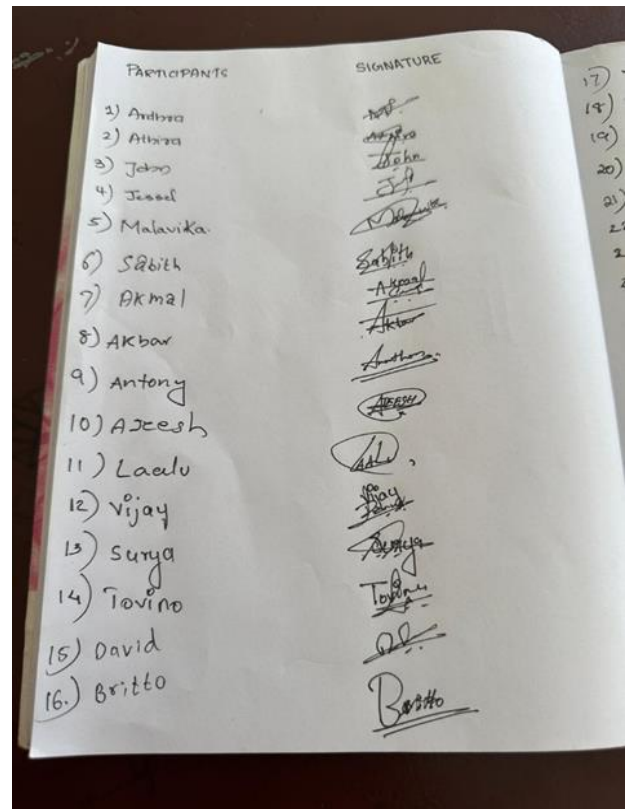 PARTICIPANTS SIGNATURE
1) Ardhra
2) Athira
3) John John
4) Jessel
5) Malavika.
6) Sabith Sabith
7) Akmal Akmal
8) Akbar Akbar
9) Antony
10) Areesh AREESH
11) Laalu
12) Vijay Vijay
13) Surya Surya
14) Tovino Tovino
15) David
16.) Britto Britto
17)
18)
19)
20)
21)